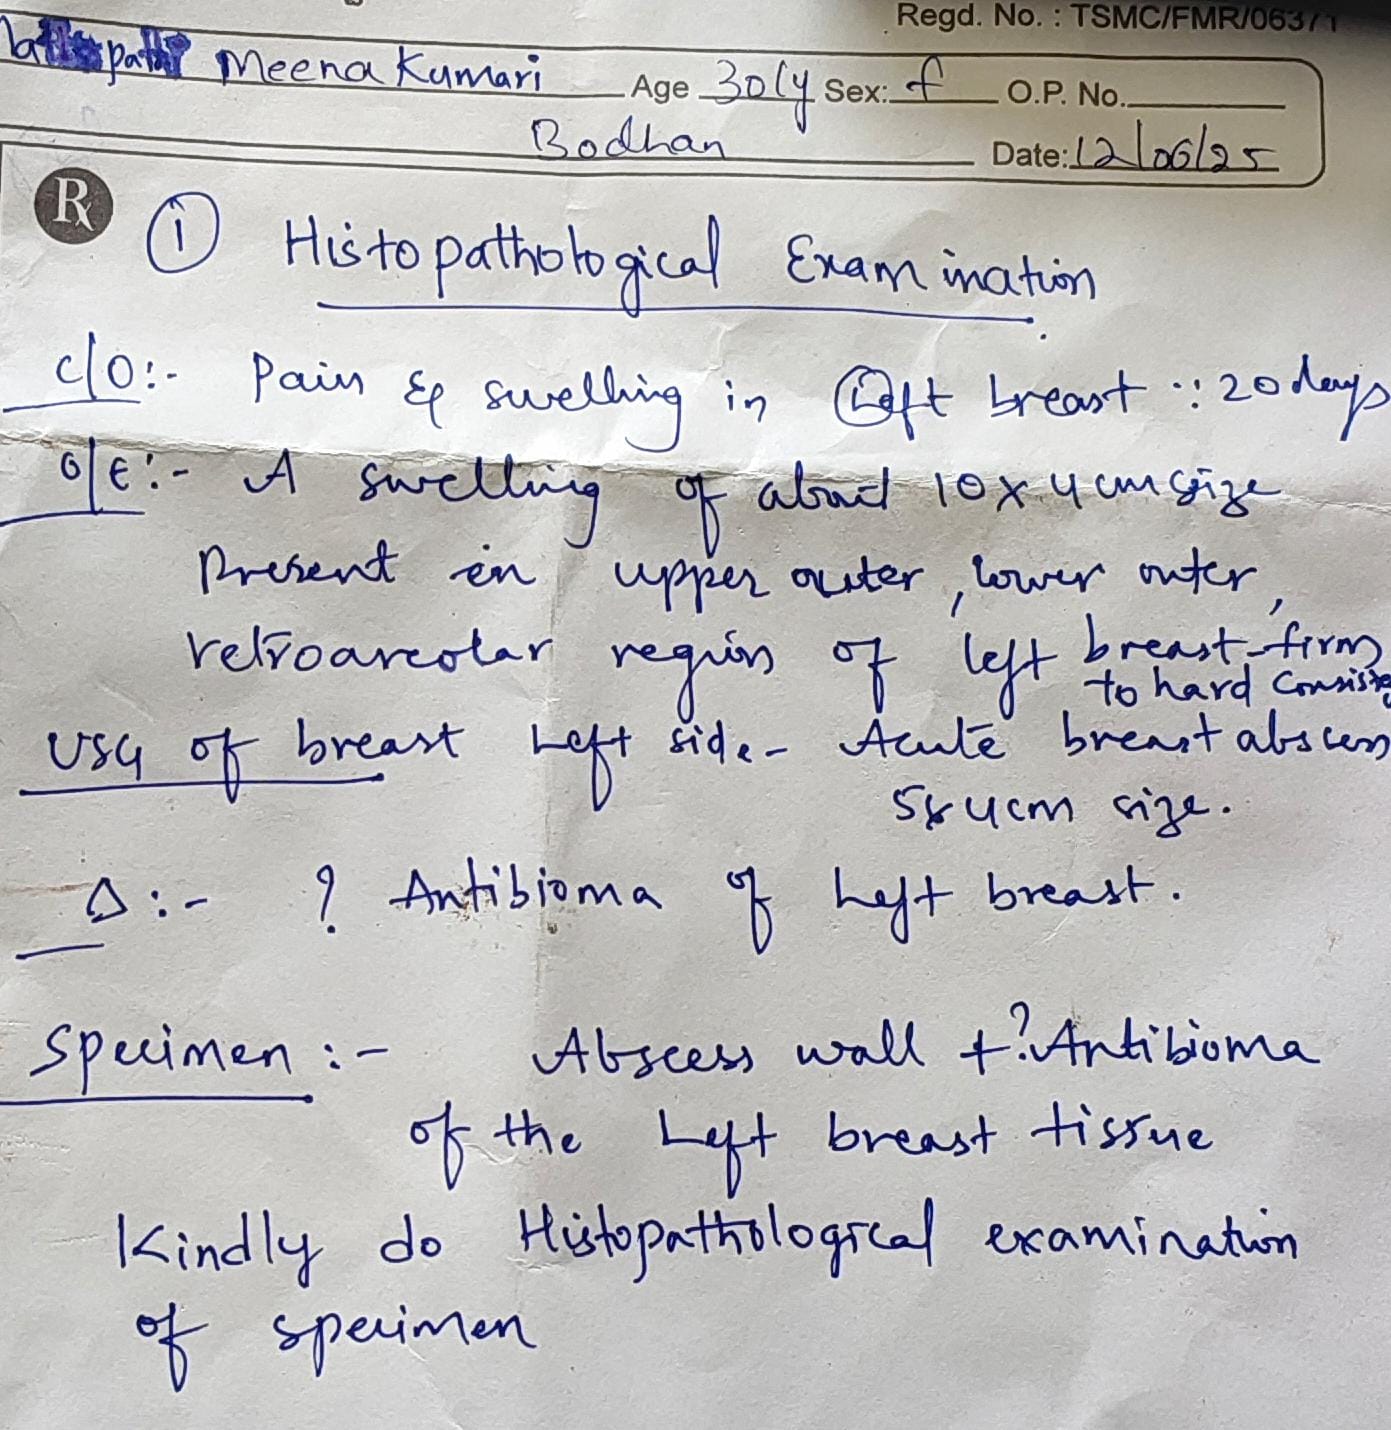 Regd. No. : TSMC/FMR/06371
Meena Kumari Age 30/y Sex: f O.P. No.
Bodhan Date: 12/06/25
Rx
① Histopathological Examination
C/O:- Pain & swelling in Left breast :: 20 days
O/E:- A swelling of about 10 x 4 cm size
Present in upper outer, lower outer,
retroareolar region of left breast - firm
to hard Consiste
USG of breast Left side - Acute breast abscess
5x4cm size.
Δ :- ? Antibioma of Left breast.
Specimen :- Abscess wall + ? Antibioma
of the Left breast tissue
Kindly do Histopathological examination
of specimen